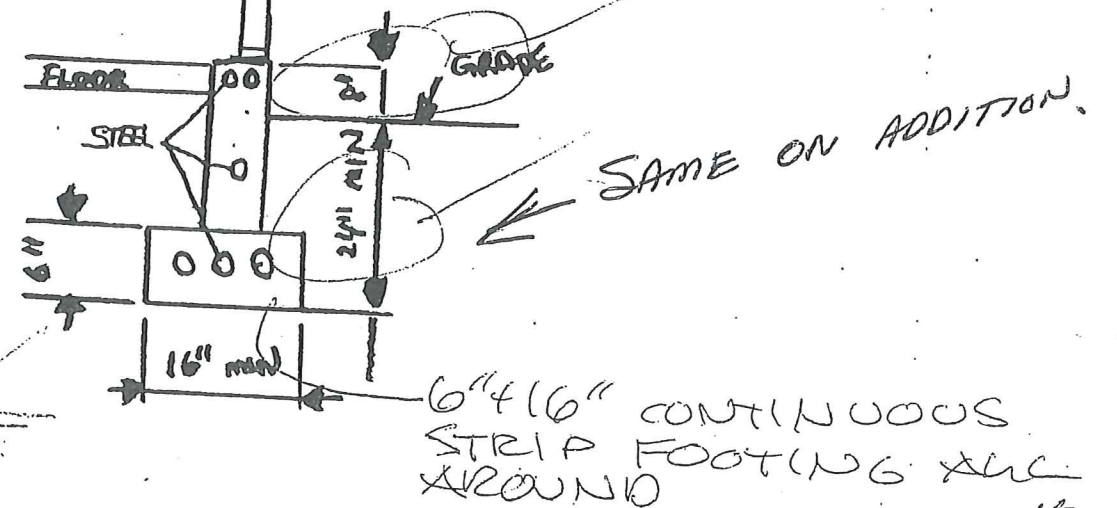 FLOOR
GRADE
STEEL
24" MIN
SAME ON ADDITION.
6"
16" MIN
6"+16" CONTINUOUS
STRIP FOOTING ALL
AROUND